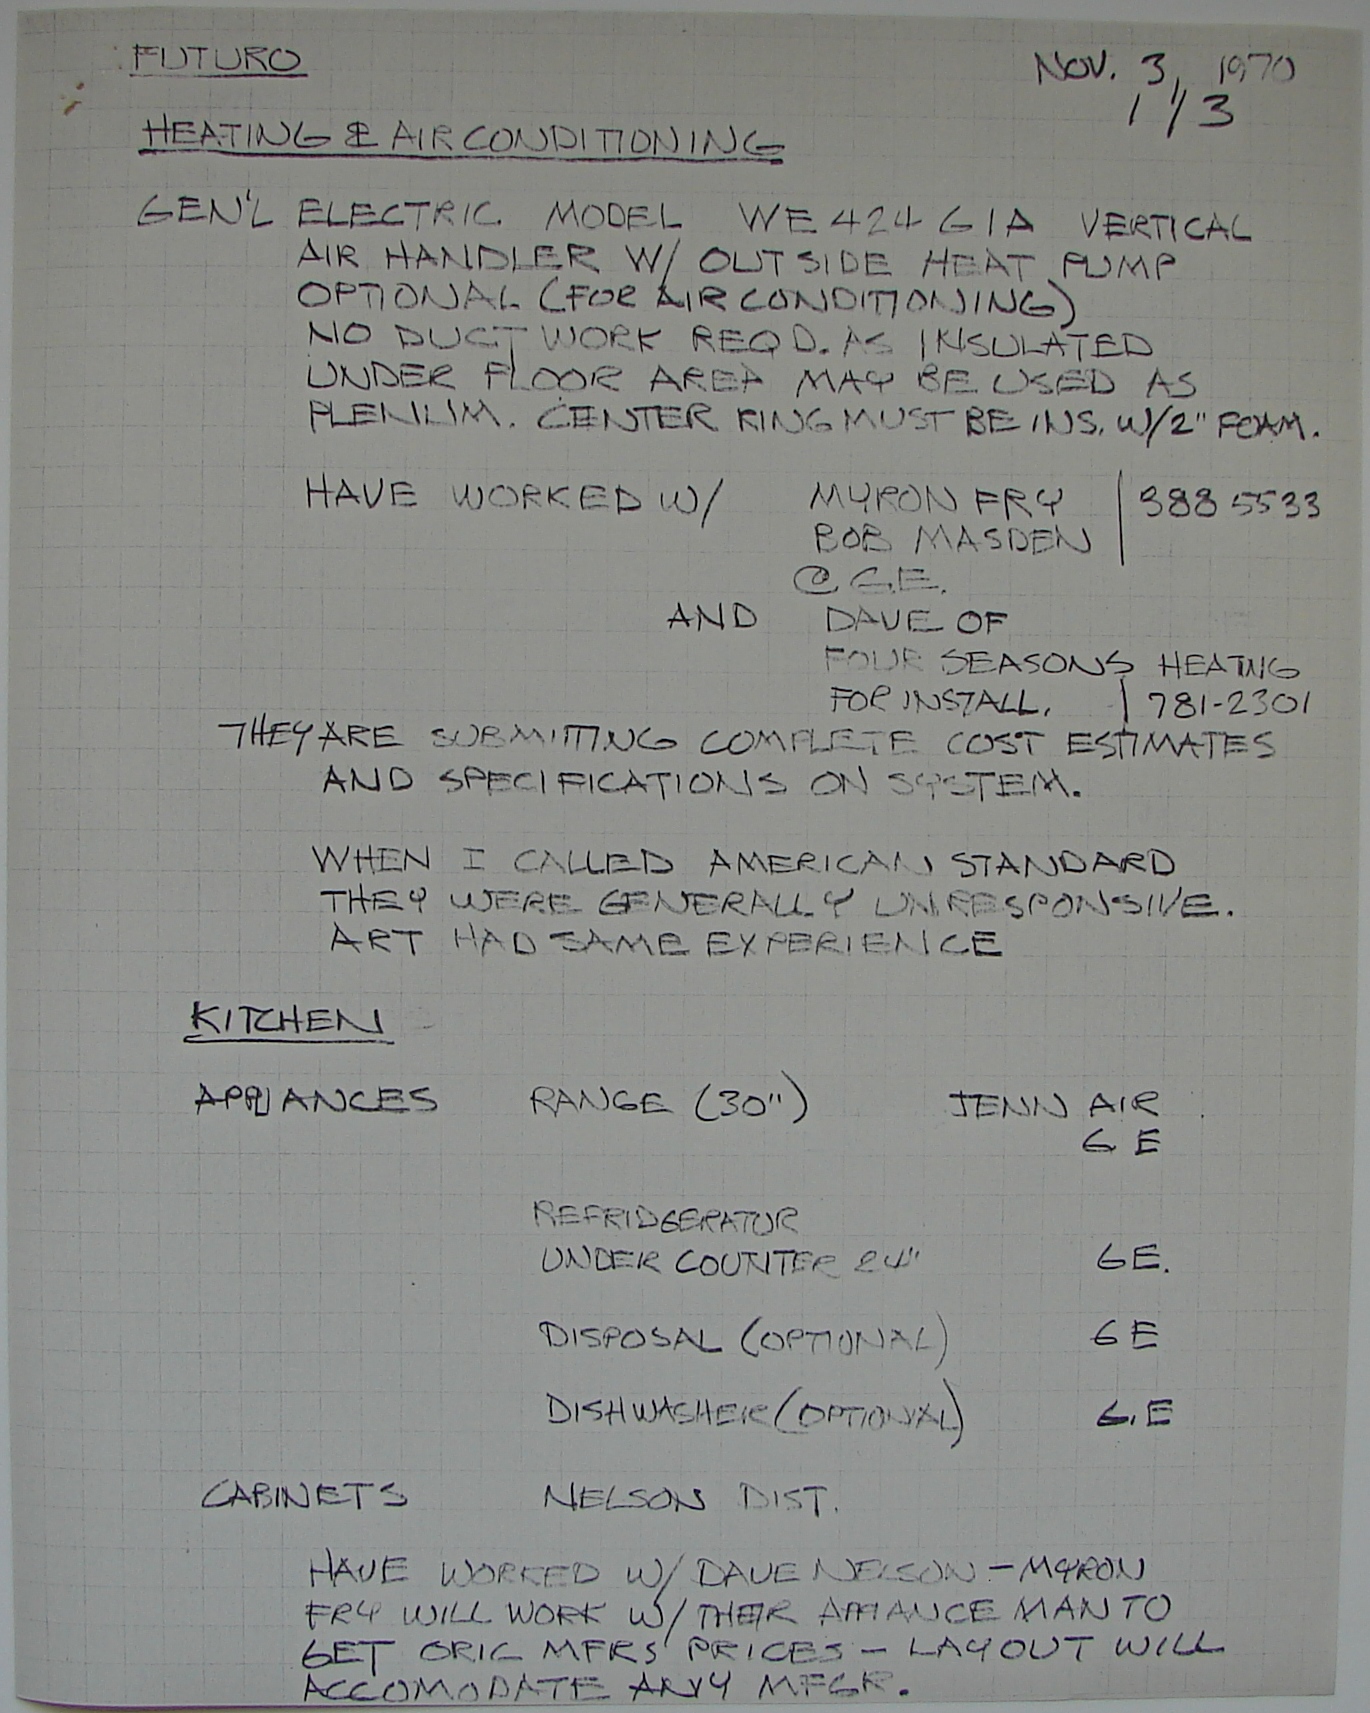 FUTURO
NOV. 3, 1970
1/3
HEATING & AIR CONDITIONING
GEN'L ELECTRIC. MODEL WE 424 G1A VERTICAL
AIR HANDLER W/ OUTSIDE HEAT PUMP
OPTIONAL (FOR AIR CONDITIONING)
NO DUCT WORK REQD. AS INSULATED
UNDER FLOOR AREA MAY BE USED AS
PLENUM. CENTER RING MUST BE INS. W/2" FOAM.
HAVE WORKED W/ MYRON FRY | 388 5533
BOB MASDEN
@ G.E.
AND DAVE OF
FOUR SEASONS HEATING
FOR INSTALL. | 781-2301
THEY ARE SUBMITTING COMPLETE COST ESTIMATES
AND SPECIFICATIONS ON SYSTEM.
WHEN I CALLED AMERICAN STANDARD
THEY WERE GENERALLY UNRESPONSIVE.
ART HAD SAME EXPERIENCE
KITCHEN
APPLIANCES RANGE (30") JENN AIR
GE
REFRIDGERATOR
UNDER COUNTER 24" GE.
DISPOSAL (OPTIONAL) GE
DISHWASHER (OPTIONAL) G.E
CABINETS NELSON DIST.
HAVE WORKED W/ DAVE NELSON - MYRON
FRY WILL WORK W/ THEIR APPIANCE MAN TO
GET ORIG MFRS' PRICES - LAYOUT WILL
ACCOMODATE ANY MFGR.